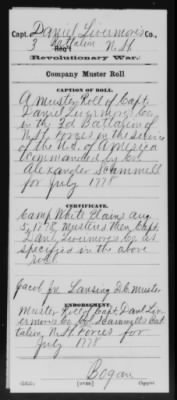 Capt. Daniel Livermore's Co.,
3 Battalion N.H.
Revolutionary War.
Company Muster Roll
CAPTION OF ROLL.
A Muster Roll of Capt.
Daniel Livermores Co.
in the 3rd Battalion of
N.H. Forces in the Service
of the U.S. of America
Commanded by Col.
Alexander Scammell
for July 1778
CERTIFICATE.
Camp White Plains Aug
5, 1778, Mustered then Capt.
Danl Livermores Co. as
specified in the above
Roll
Jacob Jno Lansing D.C. Muster
ENDORSEMENT.
Muster Roll of Capt Danl Liv
ermores Co. Col. Scammells Bat
talion, N.H. Forces for
July 1778
Bogan